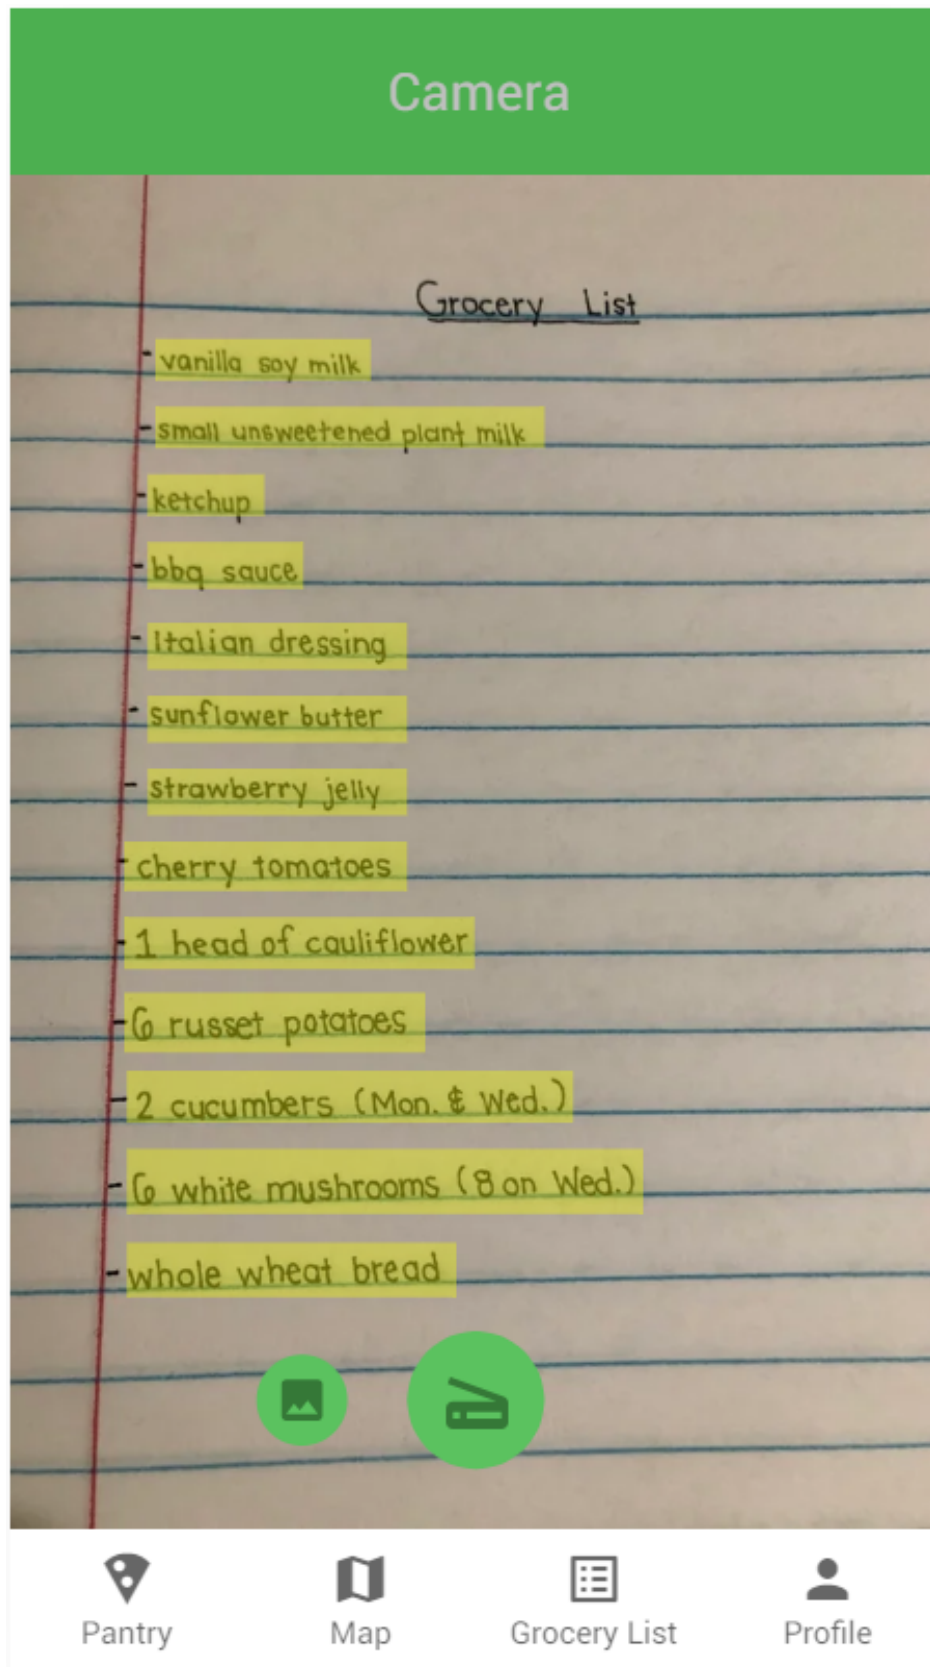 Camera
Grocery List
- vanilla soy milk
- small unsweetened plant milk
- ketchup
- bbq sauce
- Italian dressing
- sunflower butter
- strawberry jelly
- cherry tomatoes
- 1 head of cauliflower
- 6 russet potatoes
- 2 cucumbers (Mon. & Wed.)
- 6 white mushrooms (8 on Wed.)
- whole wheat bread
Pantry Map Grocery List Profile